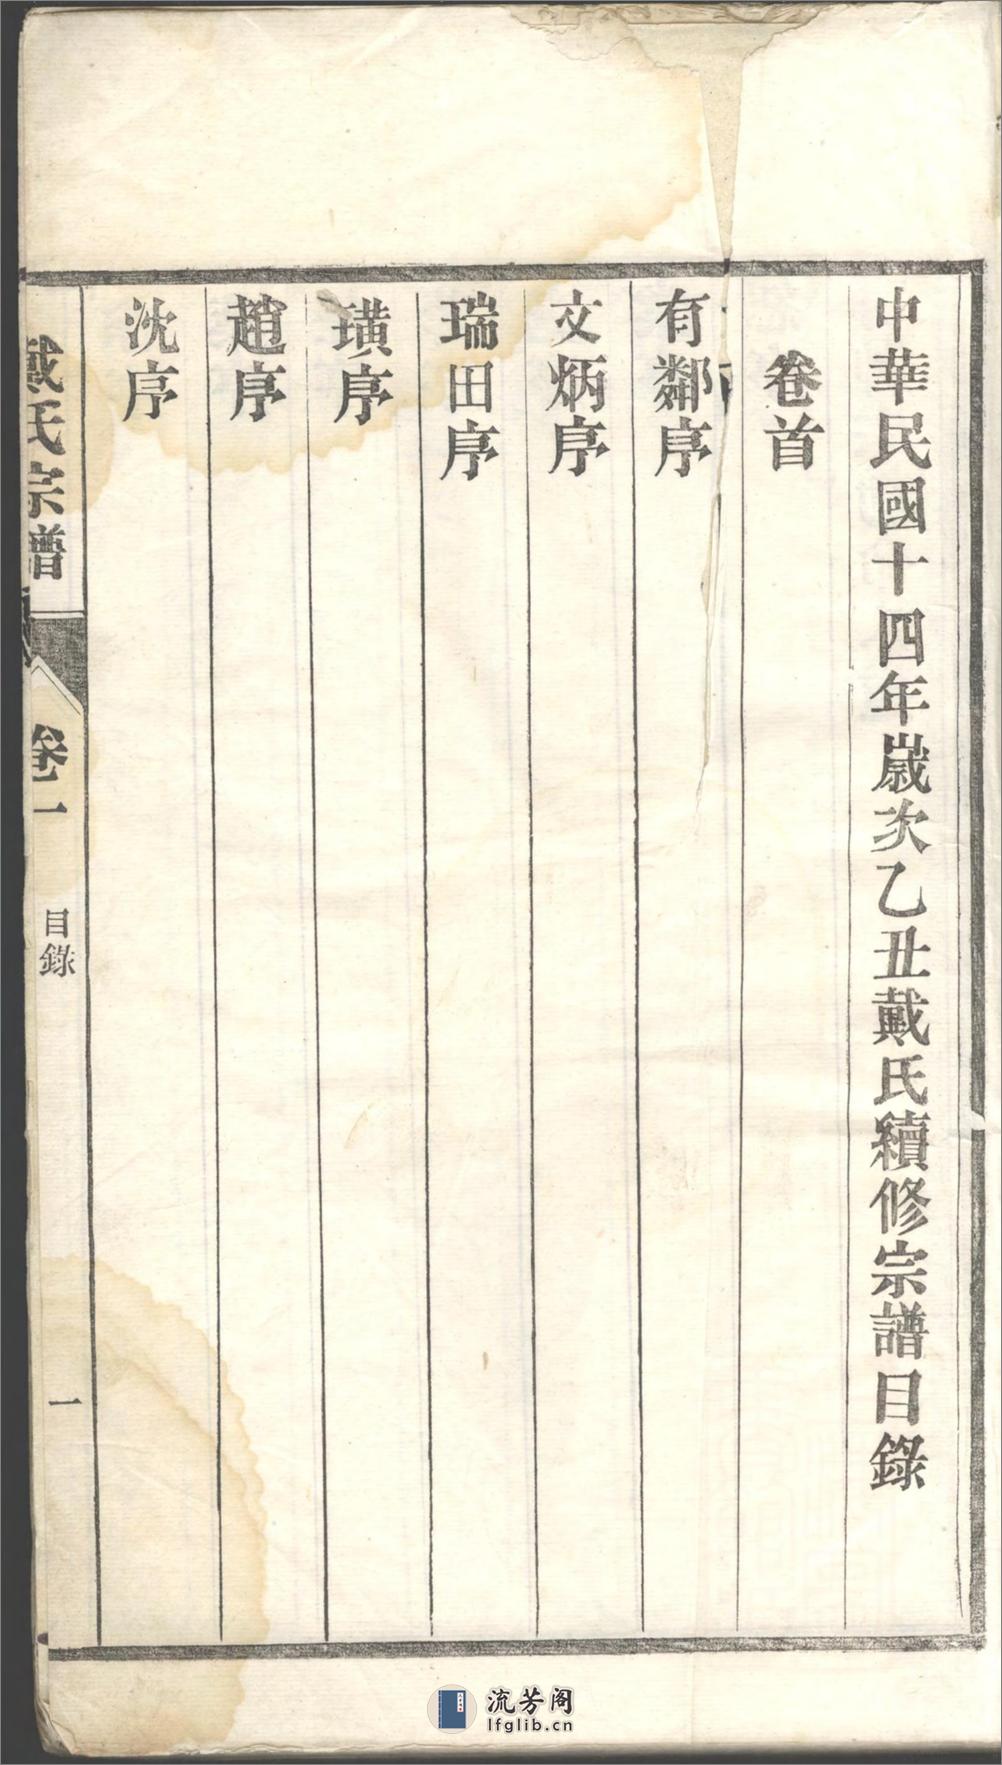 中華民國十四年歲次乙丑戴氏續修宗譜目錄
卷首
有鄰序
文炳序
瑞田序
璜序
趙序
沈序
戴氏宗譜
卷一
目錄
一
流芳阁
lfglib.cn